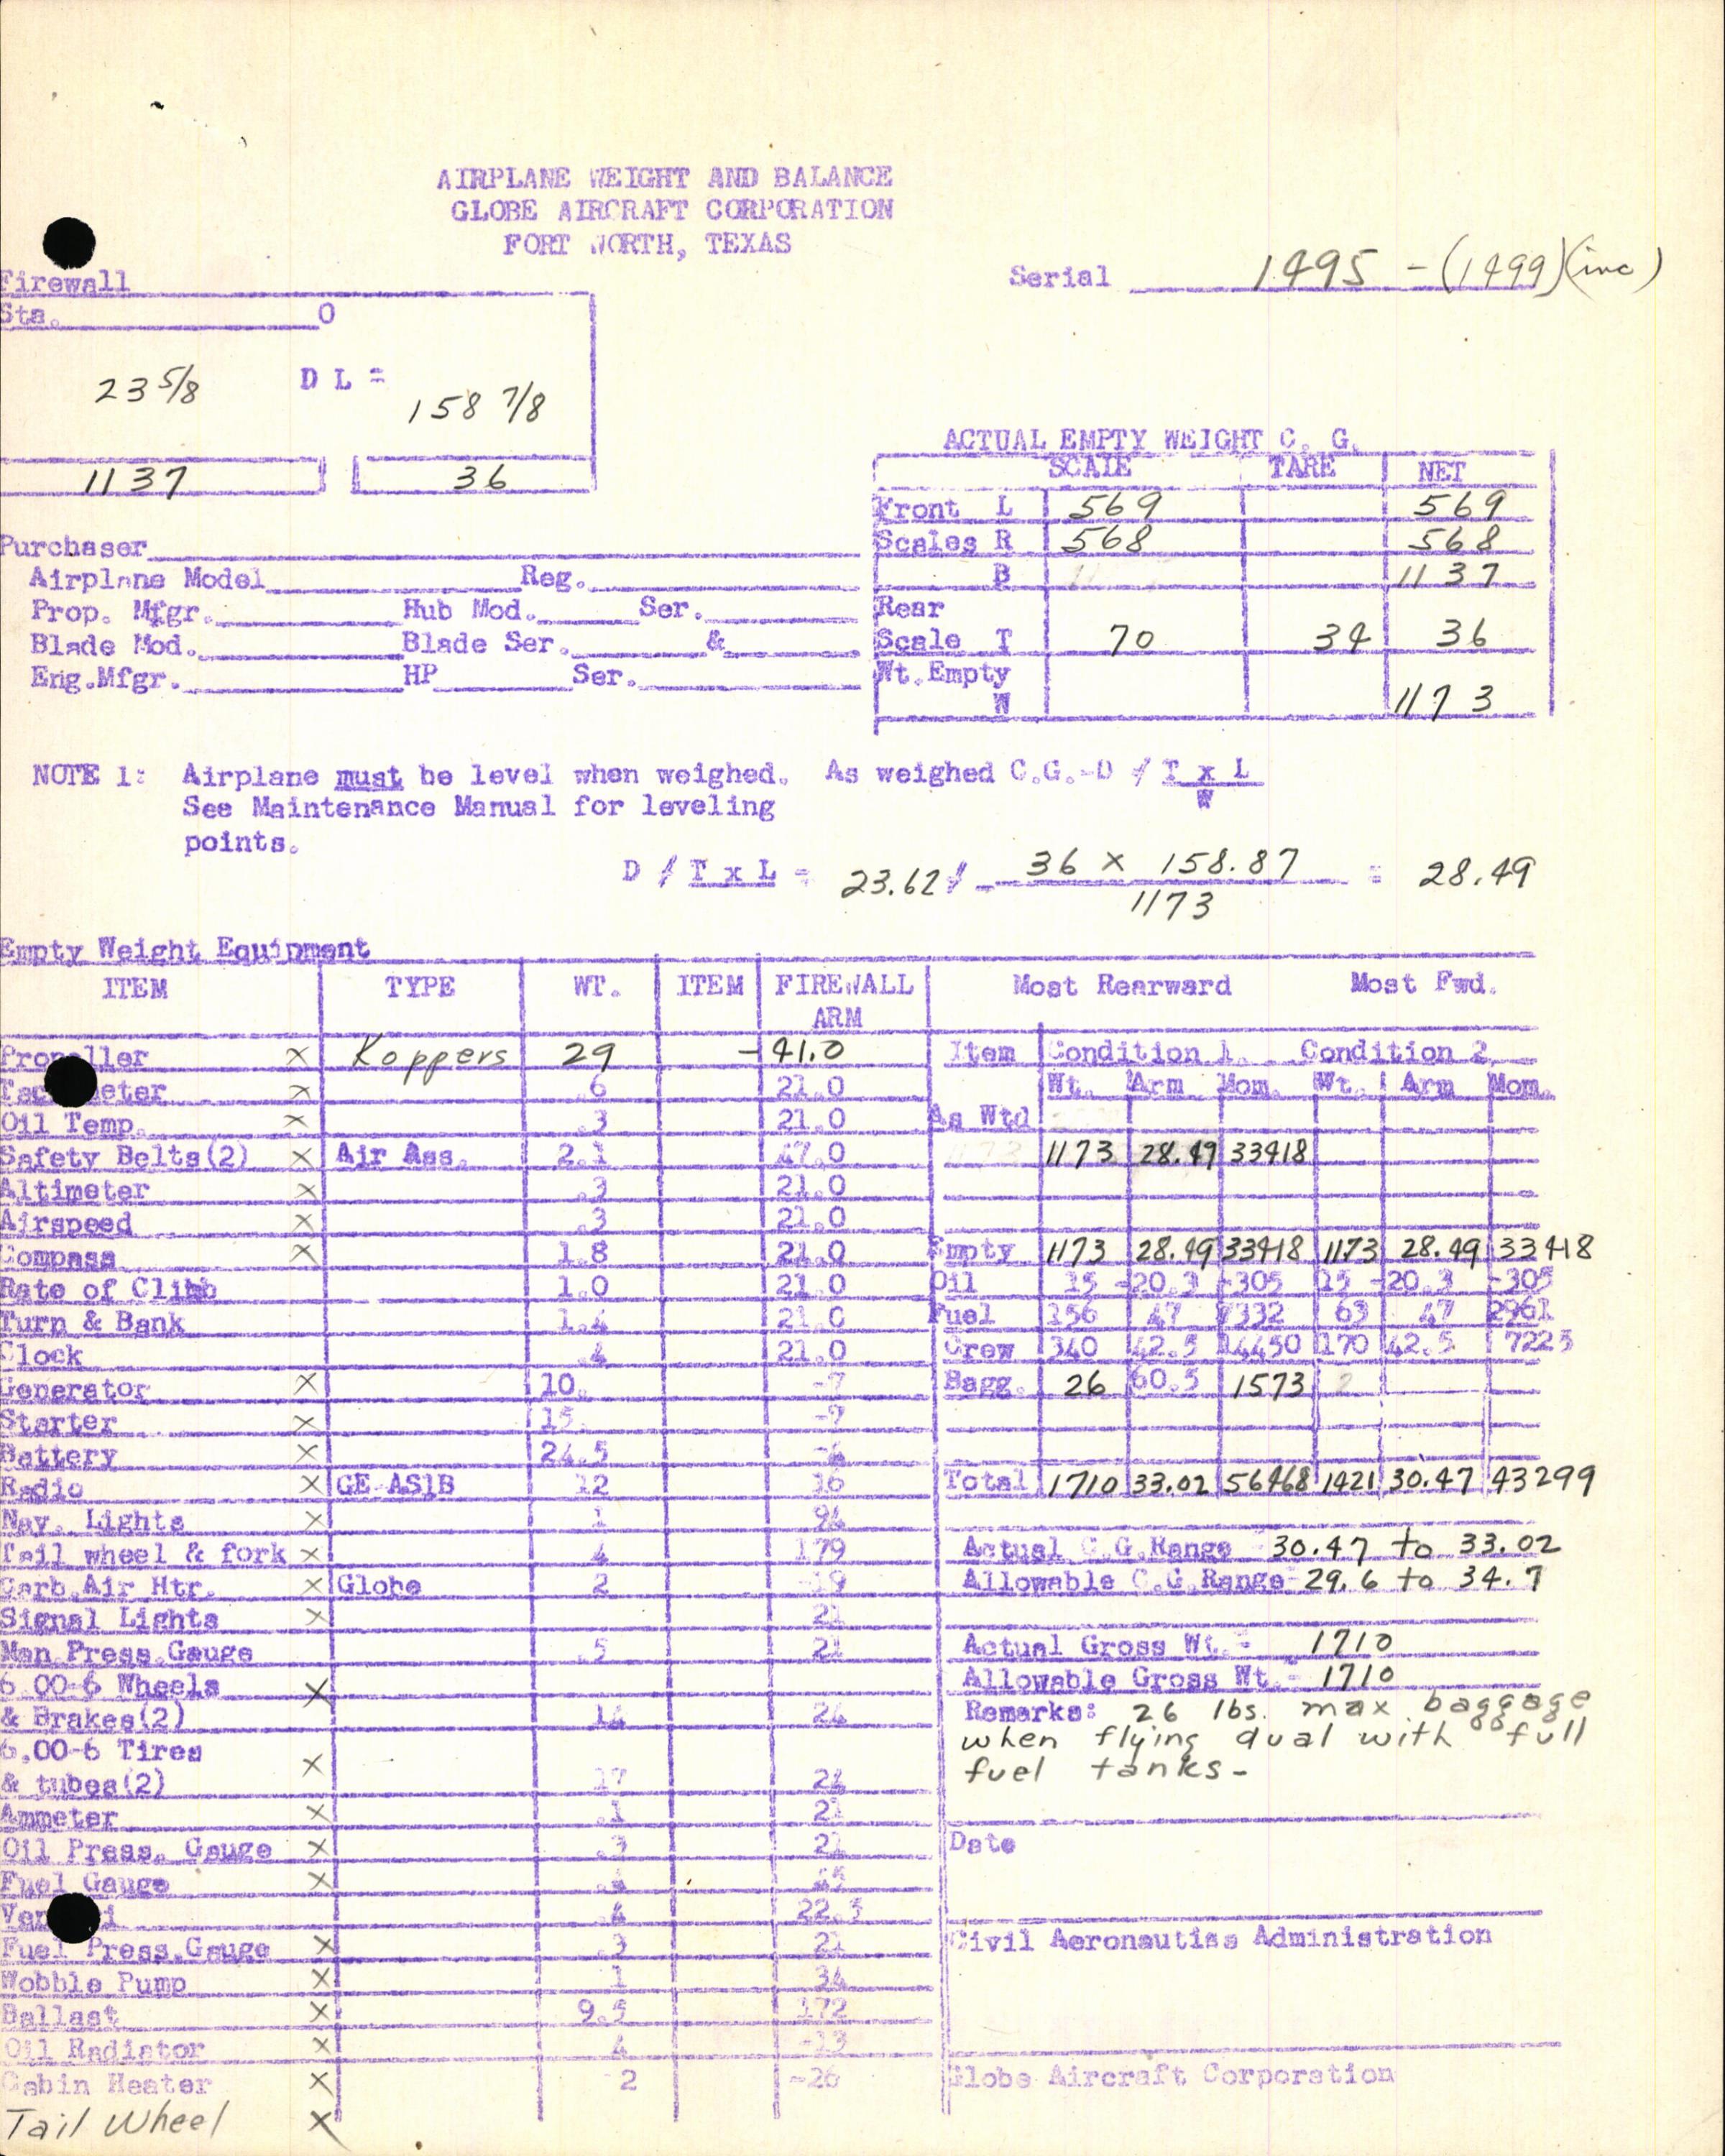 AIRPLANE WEIGHT AND BALANCE
GLOBE AIRCRAFT CORPORATION
FORT WORTH, TEXAS
Serial 1495 - (1499)(inc)
Firewall
Sta. 0
23 5/8 D L = 158 7/8
1137 36
ACTUAL EMPTY WEIGHT C. G.
SCALE TARE NET
Front L 569 569
Scales R 568 568
B 1137
Rear
Scale T 70 34 36
Wt. Empty
W 1173
Purchaser
Airplane Model Reg.
Prop. Mfgr. Hub Mod. Ser.
Blade Mod. Blade Ser. &
Eng.Mfgr. HP Ser.
NOTE 1: Airplane must be level when weighed. As weighed C.G.-D / T x L
W
See Maintenance Manual for leveling
points.
D / T x L = 23.62 / 36 x 158.87 = 28.49
1173
Empty Weight Equipment
ITEM TYPE WT. ITEM FIREWALL
ARM
Propeller X Koppers 29 -41.0
Tachometer X .6 21.0
Oil Temp. X .3 21.0
Safety Belts(2) X Air Ass. 2.1 47.0
Altimeter X .3 21.0
Airspeed X .3 21.0
Compass X 1.8 21.0
Rate of Climb 1.0 21.0
Turn & Bank 1.4 21.0
Clock .4 21.0
Generator X 10. -7
Starter X 15. -7
Battery X 24.5
Radio X GE-AS1B 12 16
Nav. Lights X 1 94
Tail wheel & fork X 4 179
Carb.Air Htr. X Globe 2 -19
Signal Lights X 21
Man.Press.Gauge .5 21
6.00-6 Wheels X
& Brakes(2) 14 24
6.00-6 Tires X
& tubes(2) 17 24
Ammeter X .1 21
Oil Press. Gauge X .3 21
Fuel Gauge X
Venturi .4 22.5
Fuel Press.Gauge X .3 21
Wobble Pump X 1 34
Ballast X 9.5 172
Oil Radiator X 4 -13
Cabin Heater X 2 -26
Tail Wheel X
Most Rearward Most Fwd.
Item Condition 1. Condition 2
Wt. Arm Mom. Wt. Arm Mom.
As Wtd
1173 28.49 33418
Empty 1173 28.49 33418 1173 28.49 33418
Oil 15 -20.3 -305 15 -20.3 -305
Fuel 156 47 7332 63 47 2961
Crew 340 42.5 14450 170 42.5 7225
Bagg. 26 60.5 1573
Total 1710 33.02 56468 1421 30.47 43299
Actual C.G.Range 30.47 to 33.02
Allowable C.G.Range 29.6 to 34.7
Actual Gross Wt. = 1710
Allowable Gross Wt. = 1710
Remarks: 26 lbs. max baggage
when flying dual with full
fuel tanks -
Date
Civil Aeronautiss Administration
Globe Aircraft Corporation